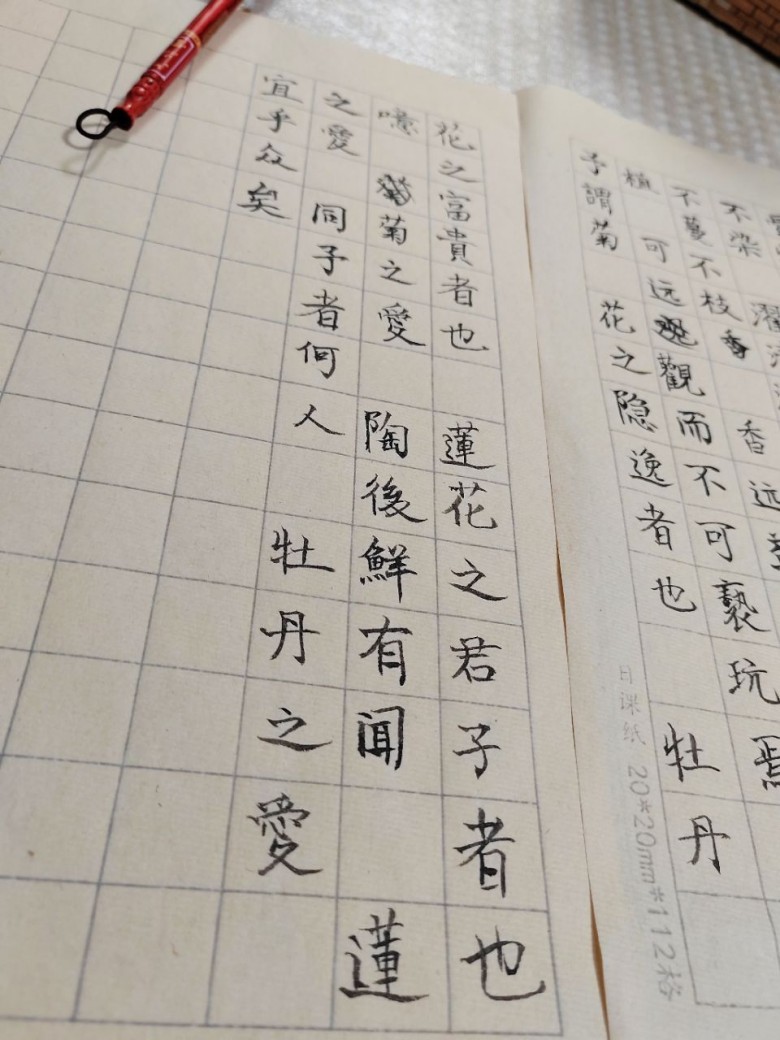 不染 濯
不蔓不枝 香远益
植 可远觀而不可褻玩焉
予謂菊 花之隐逸者也 牡丹
日课纸 20*20mm*112格
花之富貴者也 蓮花之君子者也
噫 菊之愛 陶後鮮有闻 蓮
之愛 同予者何人 牡丹之愛
宜乎众矣